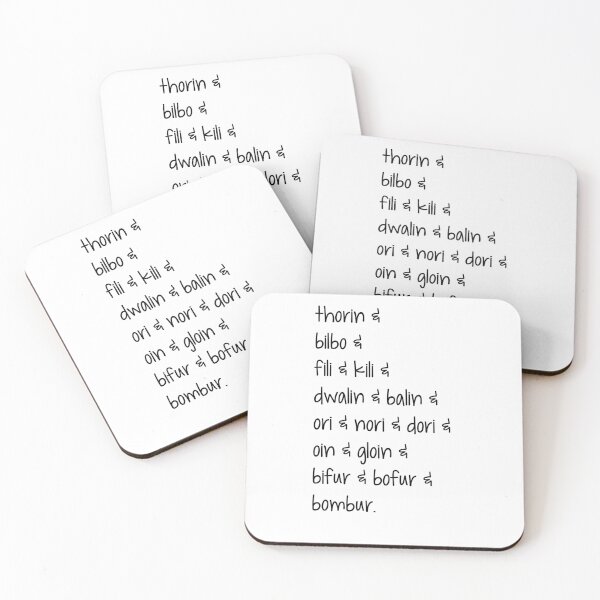 thorin &
bilbo &
fili & kili &
dwalin & balin &
dori &
thorin &
bilbo &
fili & kili &
dwalin & balin &
ori & nori & dori &
oin & gloin &
thorin &
bilbo &
fili & kili &
dwalin & balin &
ori & nori & dori &
oin & gloin &
bifur & bofur
bombur.
thorin &
bilbo &
fili & kili &
dwalin & balin &
ori & nori & dori &
oin & gloin &
bifur & bofur &
bombur.